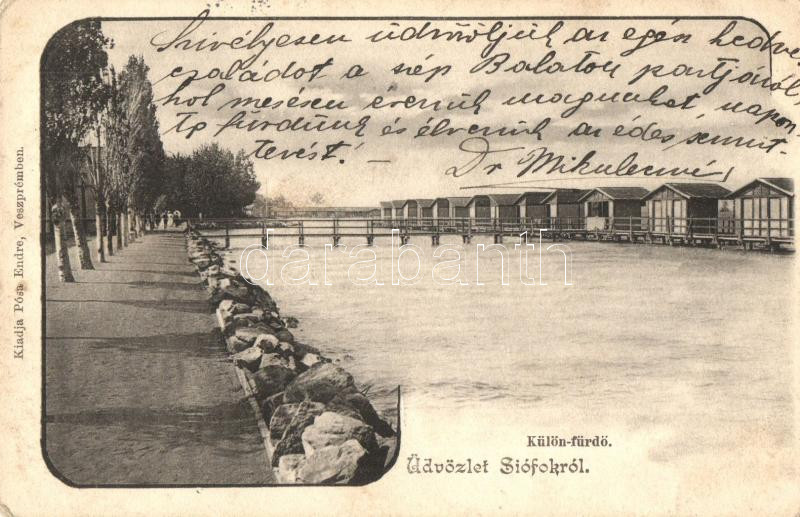 Szivélyesen üdvözöljük az egész kedves
családot a szép Balaton partjáról
hol mesésen érezzük magunkat napon-
ta fürdünk és élvezzük az édes semmit-
tevést! —
Dr Mikulecné
darabanth
Kiadja Pósa Endre, Veszprémben.
Külön-fürdő.
Üdvözlet Siófokról.